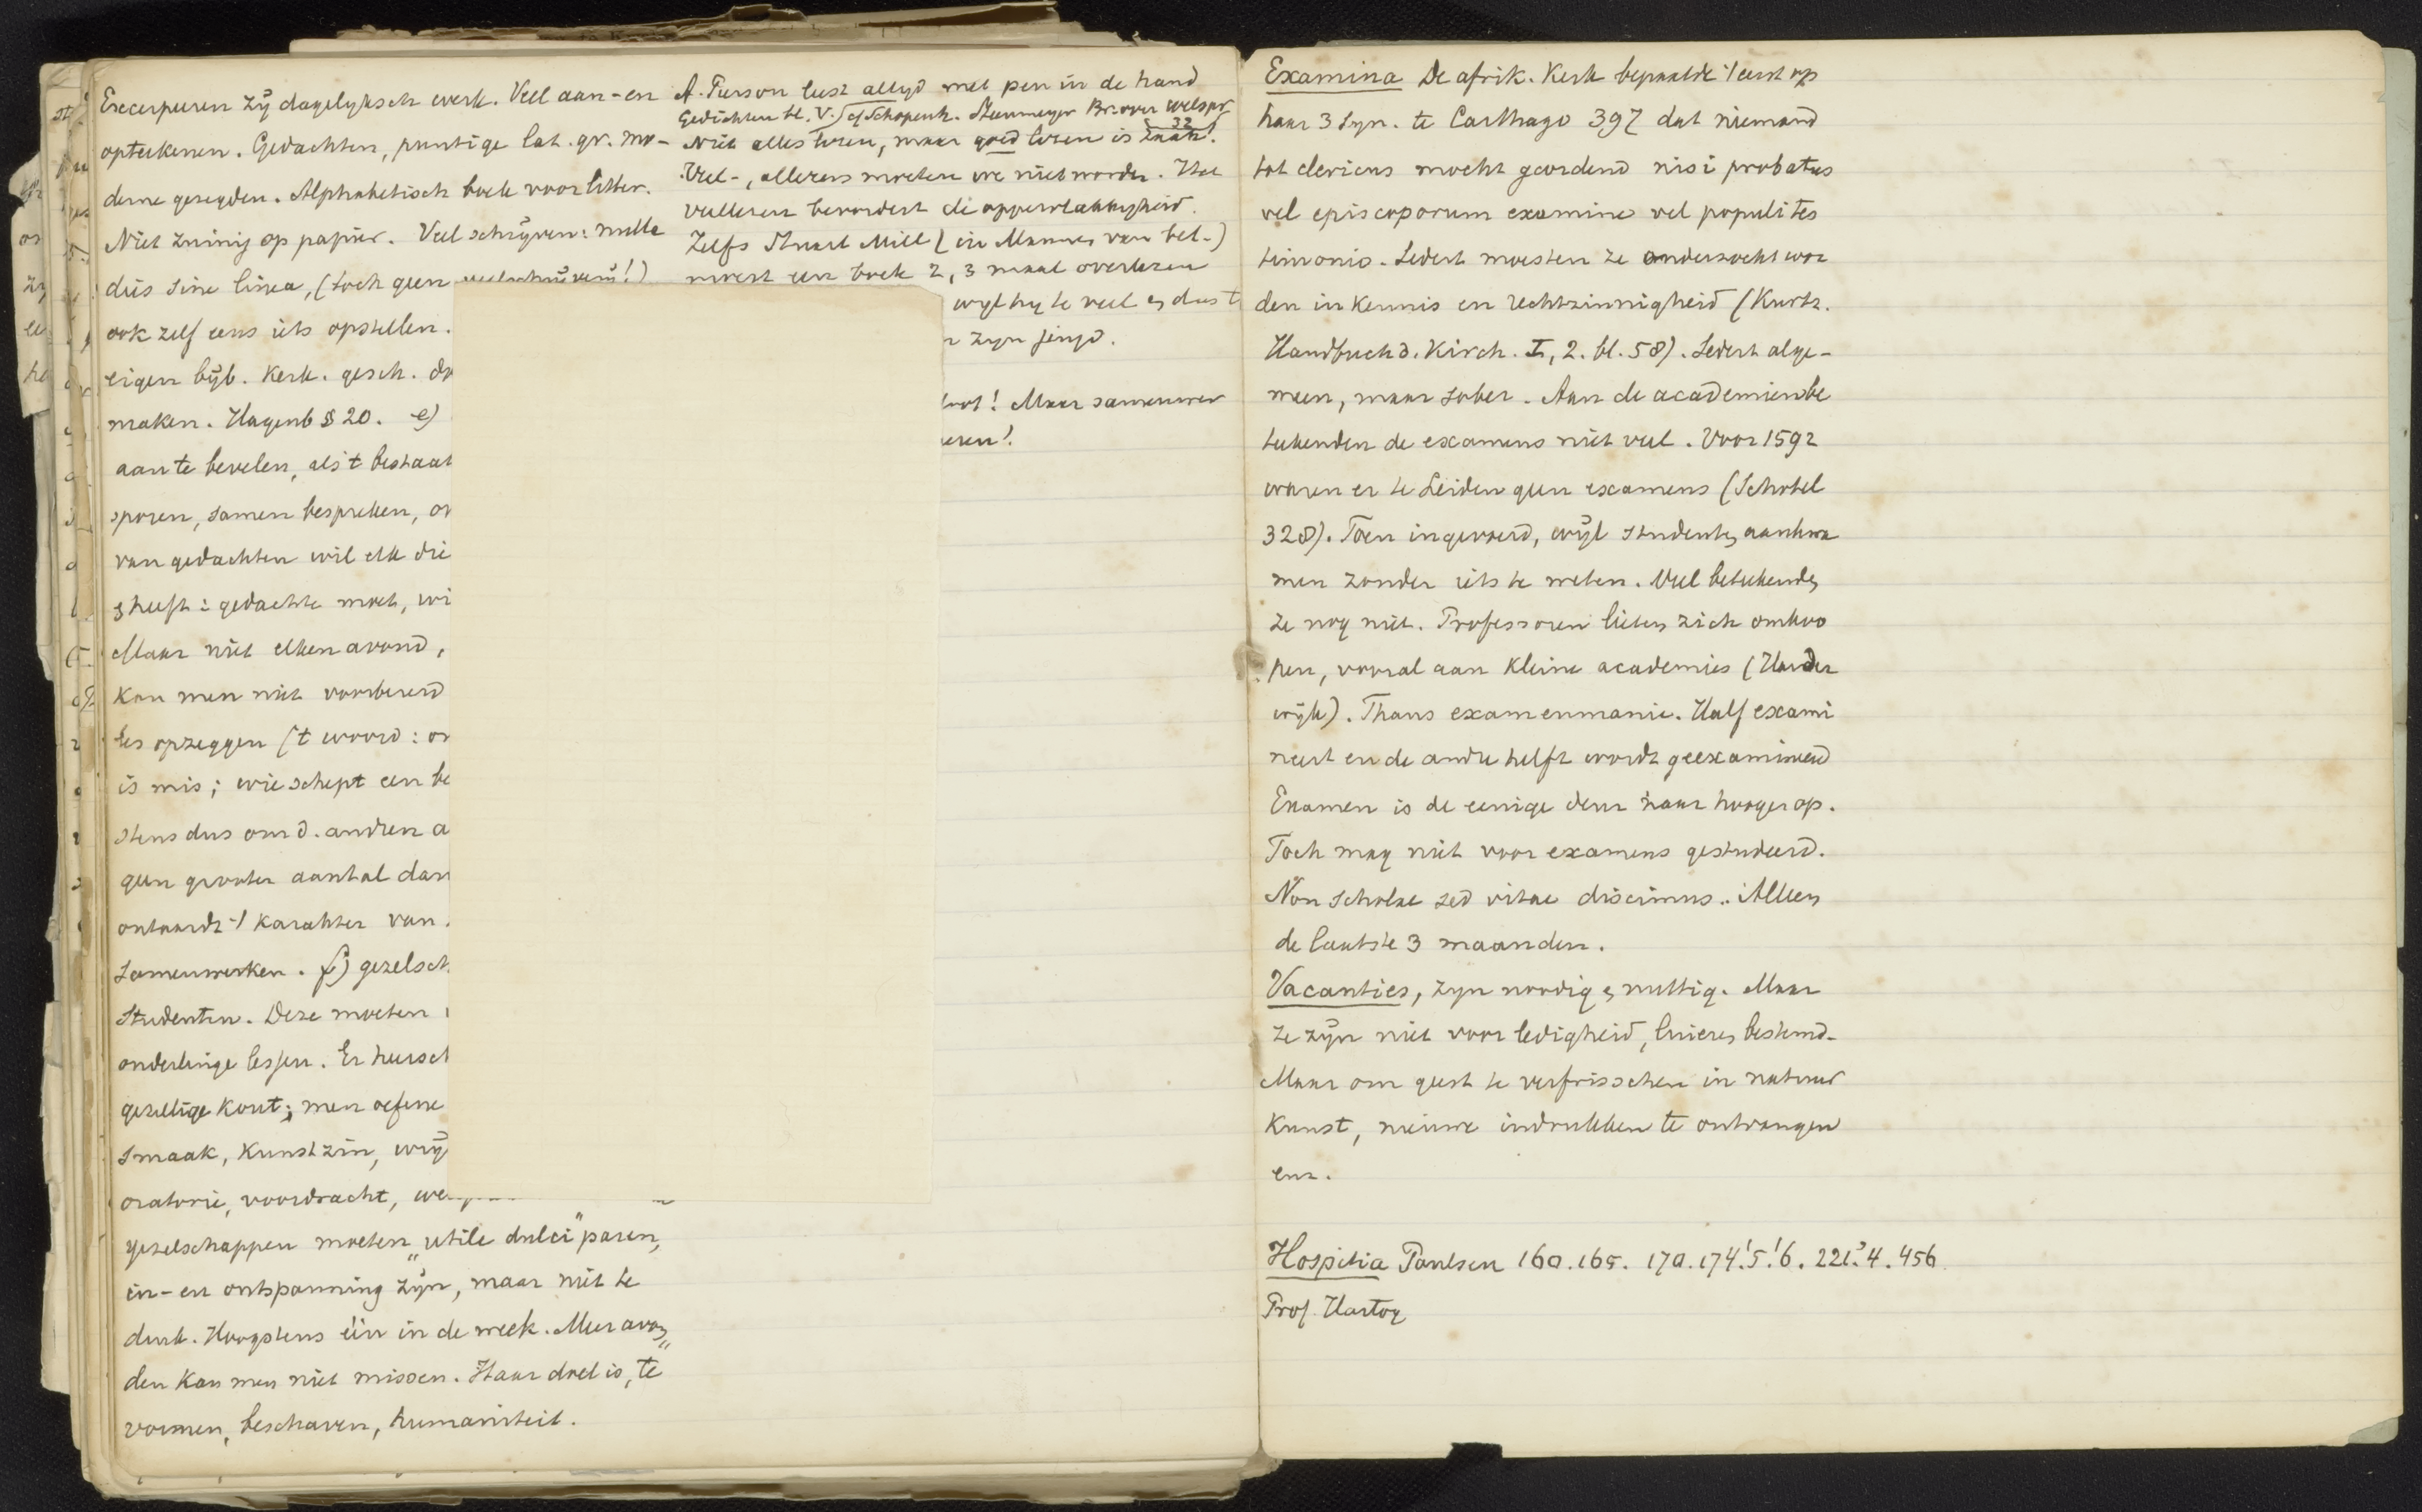 Excerpeeren zij dagelyksch werk. Veel aan-en
opteekenen. Gedachten, puntige lat. gr. mo-
derne gezegden. Alphabetisch boek voor litter.
Niet zuinig op papier. Veel schrijven: nulla
dies sine linea, (toch geen veelschrijverij!)
ook zelf eens iets opstellen.
eigen bijb. Kerk. gesch. do
maken. Hagenb § 20. e)
aan te bevelen, als 't bestaat
sporen, samen bespreken, o
van gedachten wil elk die
s heeft: gedachte moet, wi
Maar niet elken avond,
kan men niet voorbereid
les opzeggen ('t woord: o
is mis; wie schept een be
stens dus om d. andren a
geen grooter aantal dan
ontaardt 't karakter van
samenwerken. f) gezelsch
Studenten. Deze moeten
onderlinge lessen. Er heersch
gezellige kout; men oefene
smaak, kunstzin, wij
oratorie, voordracht, we
gezelschappen moeten "utile dulci" paren,
in-en ontspanning zijn, maar niet te
druk. Hoogstens één in de week. Meer avon
den kan men niet missen. Haar doel is, te
vormen, beschaven, humaniteit.
A. Pierson leest altyd met pen in de hand
Gedichten bl. V. cf Schopenh. Steenmeyer Br. over welspr. 32
Niet alles lezen, maar goed lezen is zaak!
Veel-, allezers moeten we niet worden. Het
veellezen bevordert de oppervlakkigheid.
Zelfs Stuart Mill (in Mannen van bet.)
moest een boek 2, 3 maal overlezen
wyl hy te veel en dus t
n zyn jeugd.
Maar samenwer
eren!
Examina De afrik. Kerk bepaalde 't eerst op
haar 3 syn. te Carthago 397 dat niemand
tot clericus mocht geordend nisi probatus
vel episcoporum examine vel populi tes
timonio. Sedert moesten ze onderzocht wor
den in kennis en rechtzinnigheid (Kurtz.
Handbuch d. Kirch. I, 2. bl. 58). Sedert alge-
meen, maar sober. Aan de academien be
teekenden de examens niet veel. Voor 1592
waren er te Leiden geen examens (Schotel
328). Toen ingevoerd, wijl studenten aankwa
men zonder iets te weten. Veel beteekenden
ze nog niet. Professoren lieten zich omkoo
pen, vooral aan kleine academies (Harder
wijk). Thans examenmanie. Half exami
neert en de andre helft wordt geexamineerd
Examen is de eenige deur naar hoogerop.
Toch mag niet voor examens gestudeerd.
Non scholae sed vitae discimus. Alleen
de laatste 3 maanden.
Vacanties, zyn noodig en nuttig. Maar
ze zijn niet voor ledigheid, luieren bestemd.
Maar om geest te verfrisschen in natuur
kunst, nieuwe indrukken te ontvangen
enz.
Hospitia Paulsen 160. 165. 170. 174! 5! 6. 221? 4. 456
Prof. Hartog